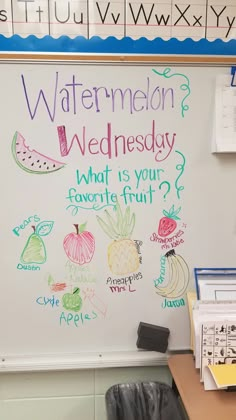 Tt Uu Vv Ww Xx Yy
Watermelon
Wednesday
What is your
favorite fruit?
Pears
Dawson
Pineapples
Strawberries
Katie
Bananas
Clyde
Apples